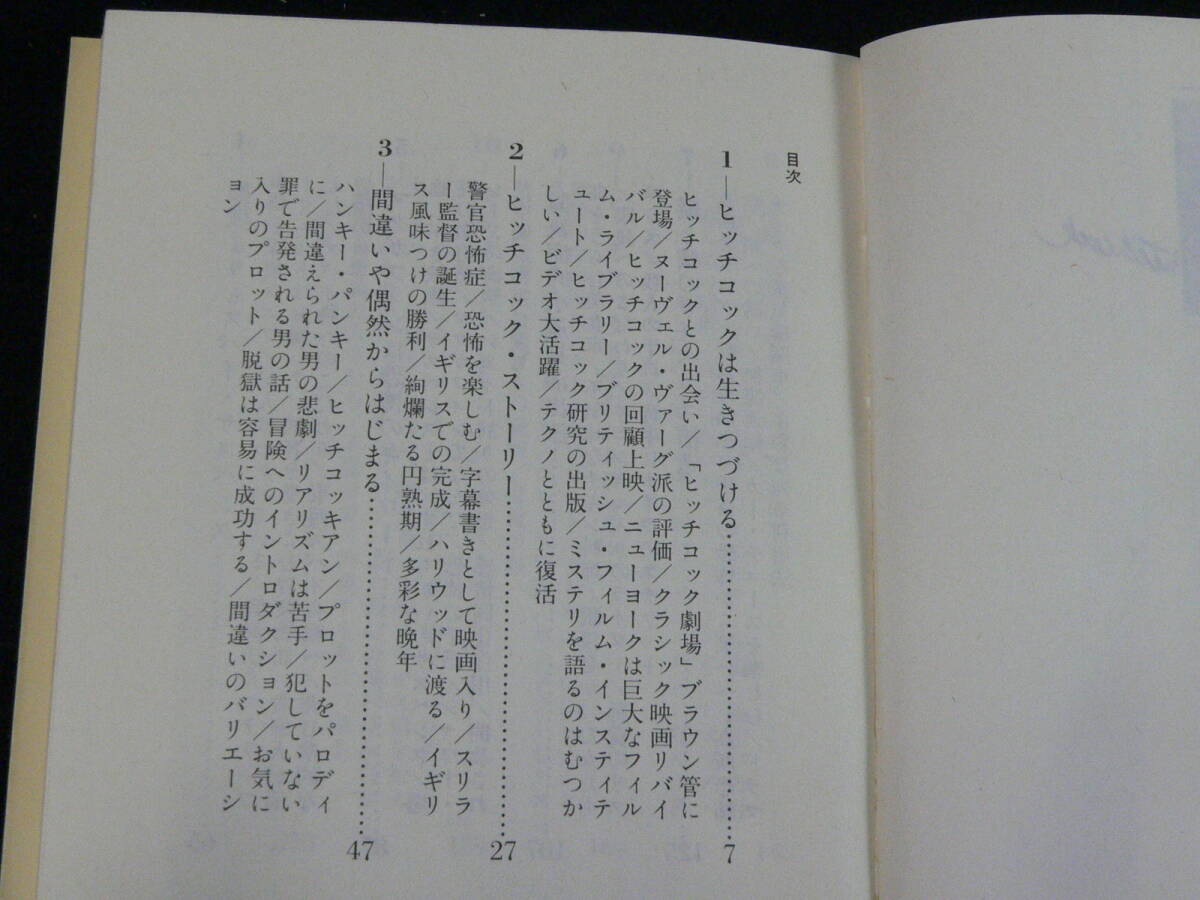 目次
1―ヒッチコックは生きつづける……………………7
ヒッチコックとの出会い/「ヒッチコック劇場」ブラウン管に
登場/ヌーヴェル・ヴァーグ派の評価/クラシック映画リバイ
バル/ヒッチコックの回顧上映/ニューヨークは巨大なフィル
ム・ライブラリー/ブリティッシュ・フィルム・インスティテ
ュート/ヒッチコック研究の出版/ミステリを語るのはむつか
しい/ビデオ大活躍/テクノとともに復活
2―ヒッチコック・ストーリー……………………27
警官恐怖症/恐怖を楽しむ/字幕書きとして映画入り/スリラ
ー監督の誕生/イギリスでの完成/ハリウッドに渡る/イギリ
ス風味つけの勝利/絢爛たる円熟期/多彩な晩年
3―間違いや偶然からはじまる……………………47
ハンキー・パンキー/ヒッチコッキアン/プロットをパロディ
に/間違えられた男の悲劇/リアリズムは苦手/犯していない
罪で告発される男の話/冒険へのイントロダクション/お気に
入りのプロット/脱獄は容易に成功する/間違いのバリエーシ
ョン